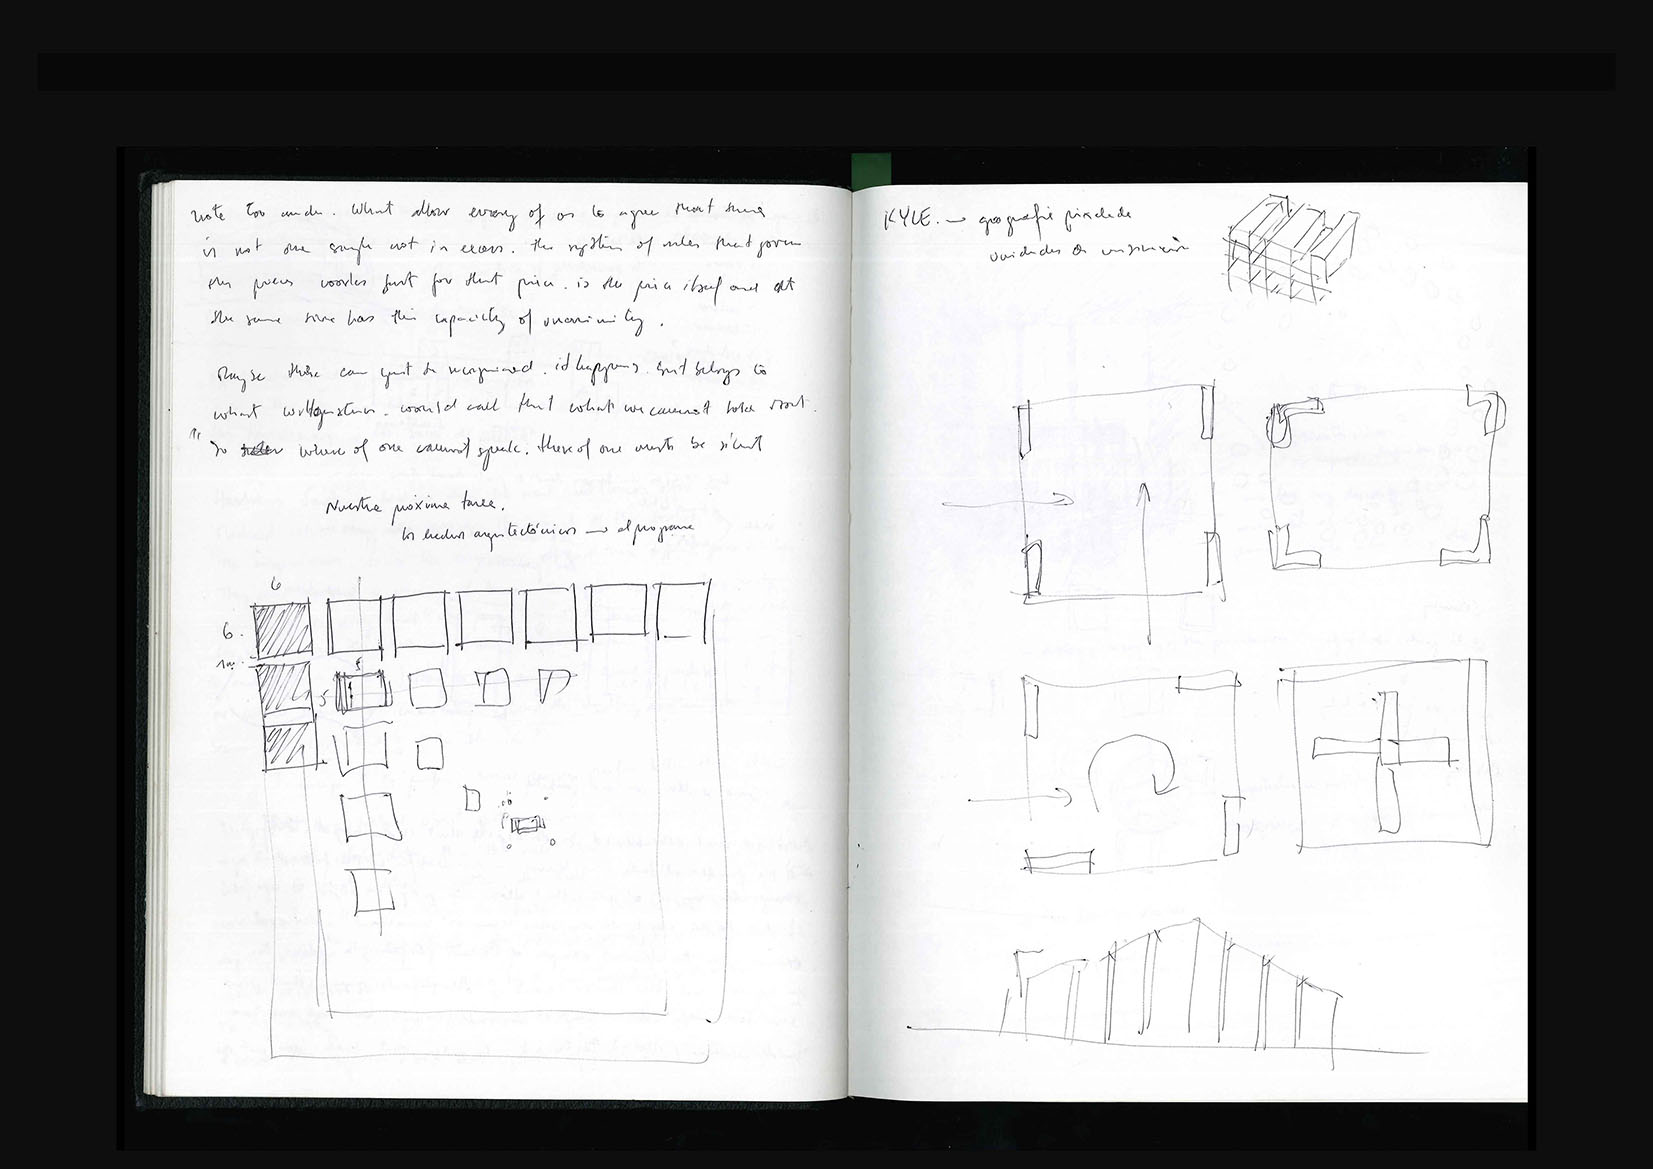 note too much. What allow every of us to agree that there
is not one single not in excess. the system of rules that govern
the pieces works just for that piece. is the piece itself and at
the same time has this capacity of unanimity.
Maybe this can just be recognized. it happens. but belongs to
what wittgenstein. would call that what we cannot talk about.
" So where of one cannot speak. thereof one must be silent
Nuestra próxima tarea.
los hechos arquitectónicos → el programa
6
6.
1m.
5
5
KYLE. → geografía pixelada
unidades de